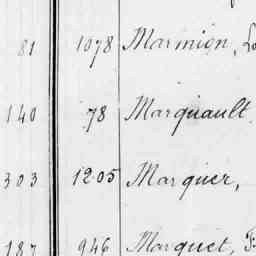 81 1078 Marmion, Lo
140 78 Marquault
303 1205 Marquer,
187 946 Marquet, F